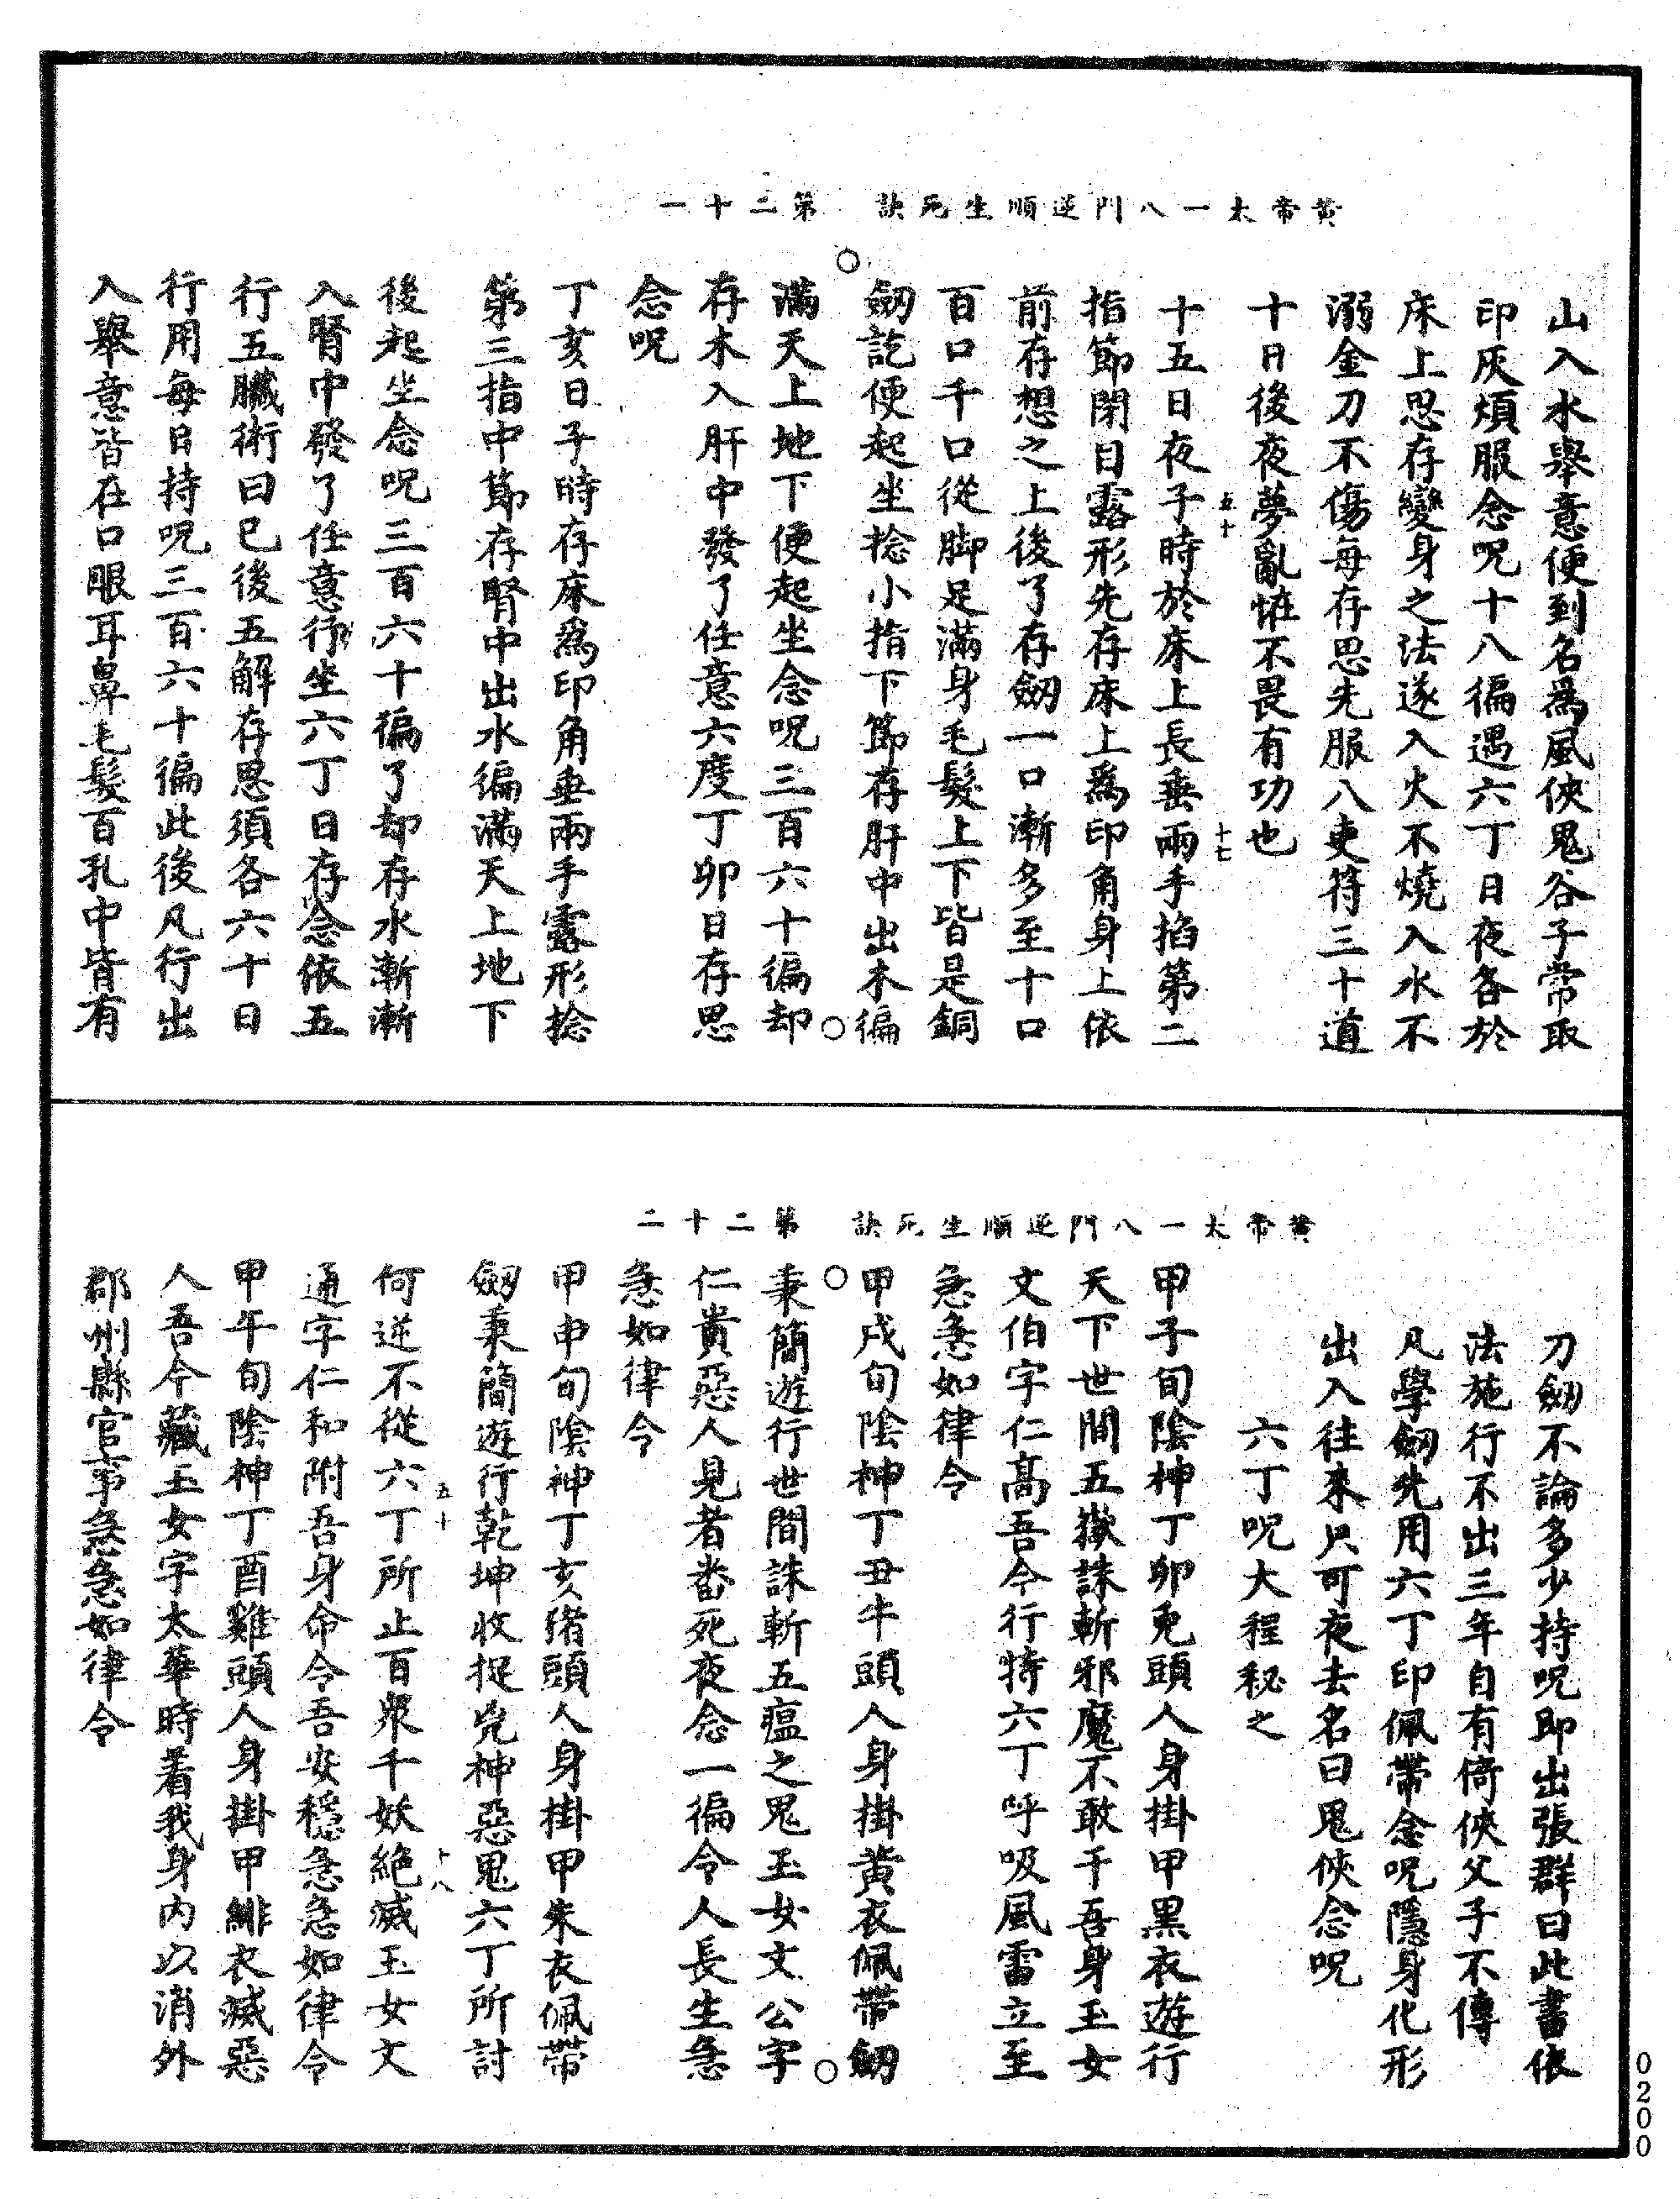 黃帝太一八門逆順生死訣　第二十一
山入水舉意便到名爲風俠鬼谷子常取
印灰煩服念呪十八徧遇六丁日夜各於
床上思存變身之法遂入火不燒入水不
溺金刀不傷每存思先服八吏符三十道
十日後夜夢亂恠不畏有功也
五十　十七
十五日夜子時於床上長垂兩手掐第二
指節閉目露形先存床上爲印角身上依
前存想之上後了存劒一口漸多至十口
百口千口從脚足滿身毛髮上下皆是銅
劒訖便起坐捻小指下節存肝中出木徧
滿天上地下便起坐念呪三百六十徧却
存木入肝中發了任意六度丁卯日存思
念呪
丁亥日子時存床爲印角垂兩手露形捻
第三指中節存腎中出水徧滿天上地下
後起坐念呪三百六十徧了却存水漸漸
入腎中發了任意行坐六丁日存念依五
行五臟術曰已後五解存思須各六十日
行用每日持呪三百六十徧此後凡行出
入舉意皆在口眼耳鼻毛髮百孔中皆有
黃帝太一八門逆順生死訣　第二十二
刀劒不論多少持呪即出張群曰此書依
法施行不出三年自有倚俠父子不傳
凡學劒先用六丁印佩帶念呪隱身化形
出入往來只可夜去名曰鬼俠念呪
六丁呪大程秘之
甲子旬陰神丁卯兎頭人身掛甲黑衣遊行
天下世間五嶽誅斬邪魔不敢干吾身玉女
文伯字仁高吾今行持六丁呼吸風雷立至
急急如律令
甲戌旬陰神丁丑牛頭人身掛黃衣佩帶劒
秉簡遊行世間誅斬五瘟之鬼玉女文公字
仁貴惡人見者沓死夜念一徧令人長生急
急如律令
甲申旬陰神丁亥猪頭人身掛甲朱衣佩帶
劒秉簡遊行乾坤收捉兇神惡鬼六丁所討
何逆不從六丁所止百衆千妖絶滅玉女文
五十　十八
通字仁和附吾身命令吾安穩急急如律令
甲午旬陰神丁酉雞頭人身掛甲緋衣滅惡
人吾今藏玉女字太華時着我身内以消外
郡州縣官事急急如律令
0200